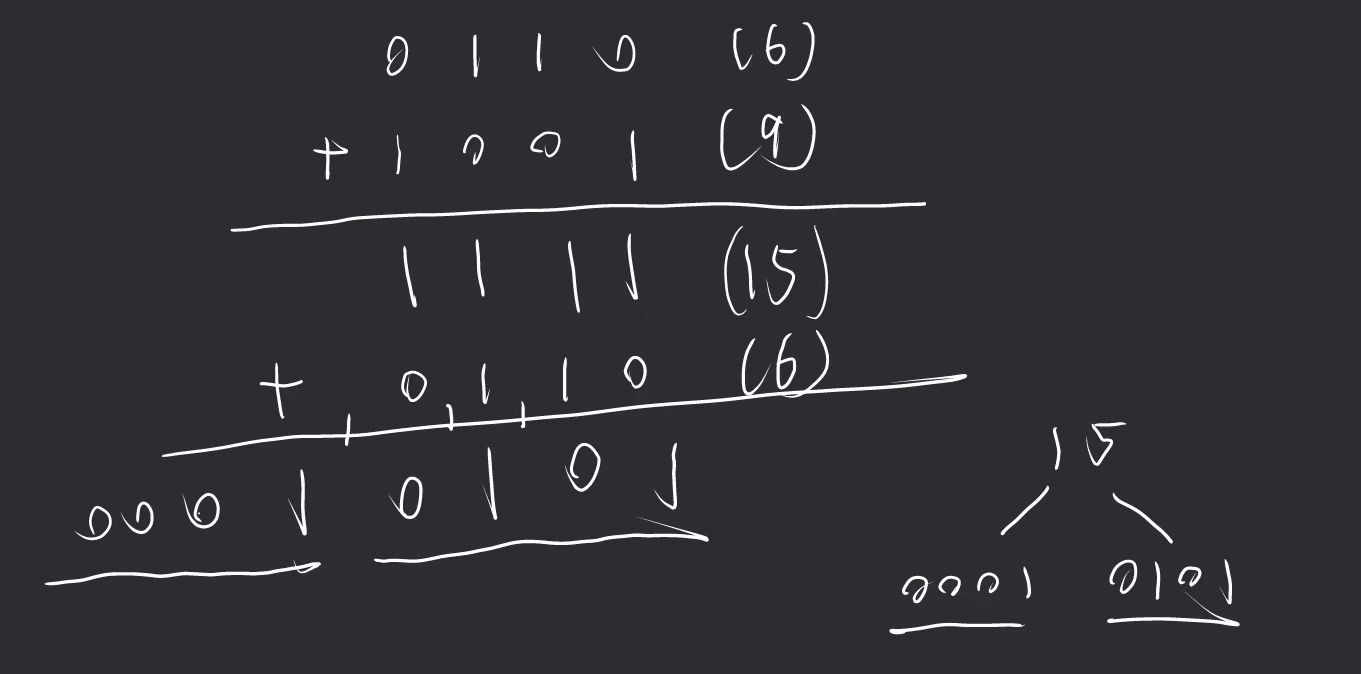 0 1 1 0 (6)
+ 1 0 0 1 (9)
1 1 1 1 (15)
+ 0 1 1 0 (6)
0 0 0 1 0 1 0 1
15
0001 0101